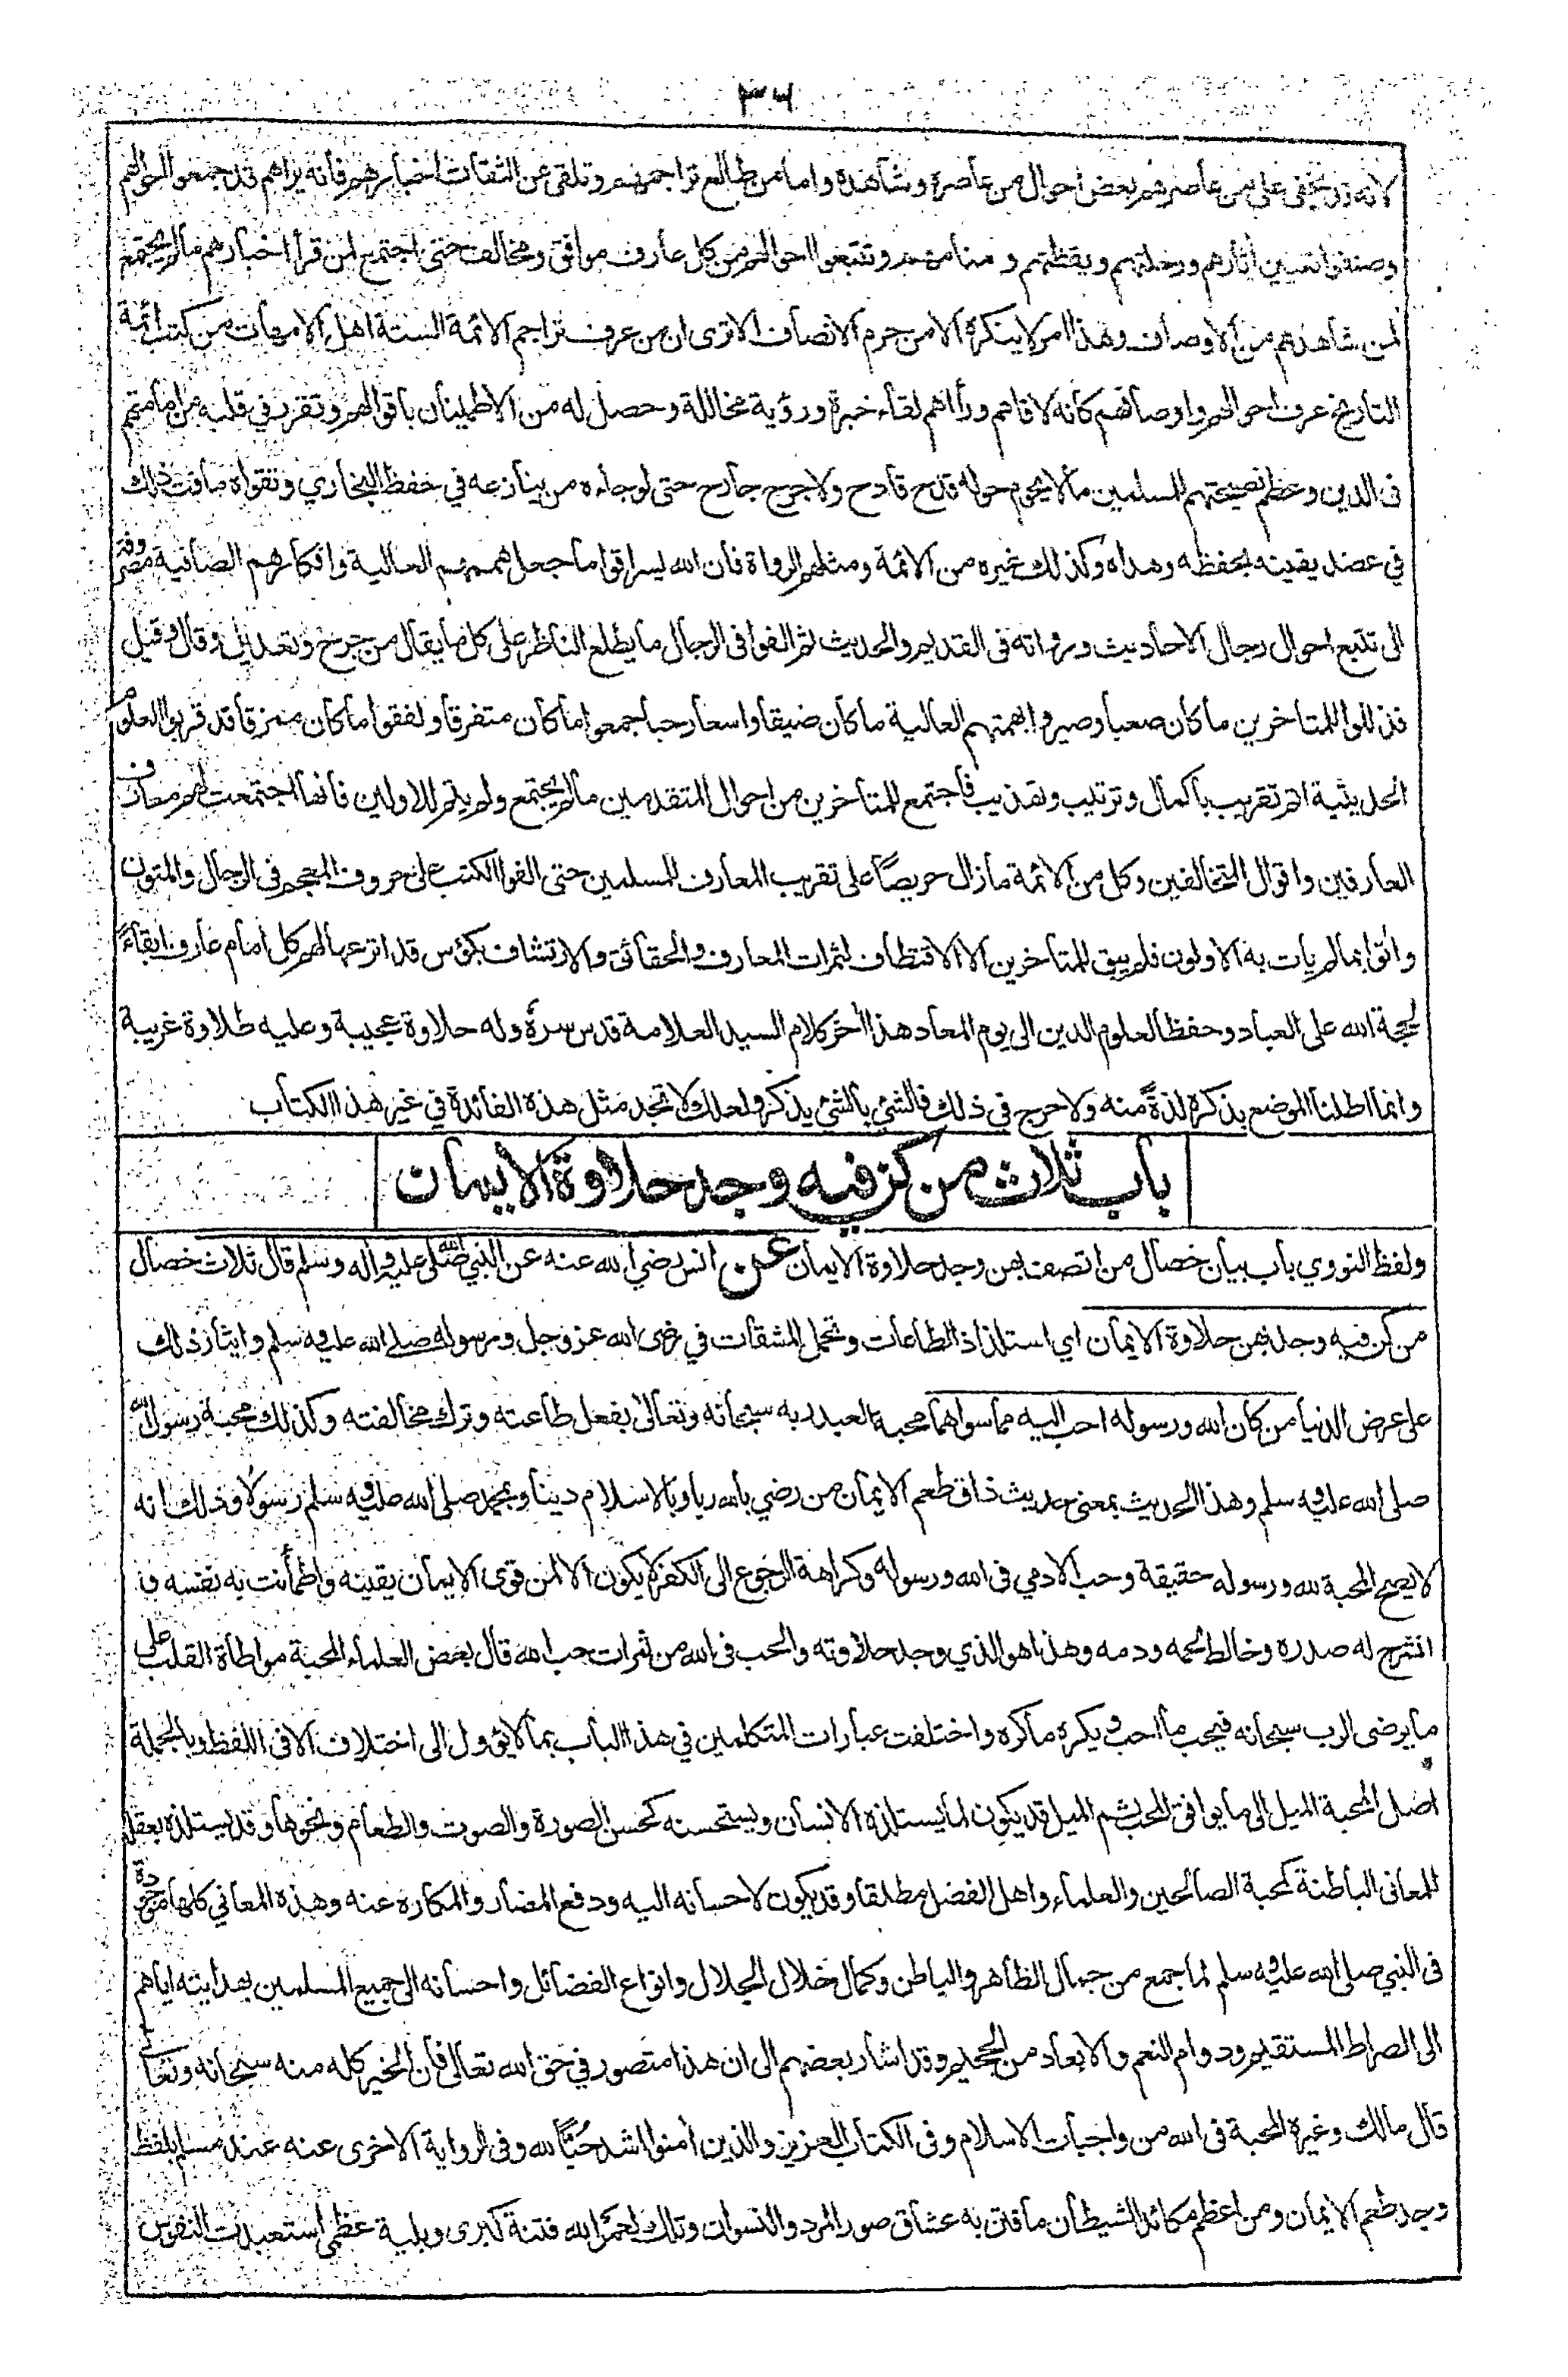 ٣٦
لانه قد يخفى على من عاصرهم بعض احوال من عاصره وشاهده واما من طالع تراجمهم وتلقى عن الثقات اخبارهم فانه يراهم قد جمعوا احوالهم
وصنفوا تعيين آثارهم ورحلتهم ويقظتهم ومنامهم وتتبعوا احوالهم من كل عارف موافق ومخالف حتى اجتمع لمن قرأ اخبارهم مالم يجتمع
لمن شاهدهم من الاوصاف وهذا امر لا ينكره الا من حرم الانصاف الا ترى ان من عرف تراجم الائمة الستة اهل الامهات من كتب ائمة
التاريخ عرف احوالهم واوصافهم كانه لاقاهم ورآهم لقاء خبرة ورؤية مخاللة وحصل له من الاطمينان باقوالهم وتقرر في قلبه من امامتهم
فى الدين وعظم نصيحتهم للمسلمين مالا يحوم حوله قدح قادح ولا جرح جارح حتى لو جاءه من ينازعه في حفظ البخاري وتقواه مافت ذلك
في عضد يقينه بحفظه وهداه وكذلك غيره من الائمة ومثلهم الرواة فان الله يسر اقواما جعل هممهم العالية وافكارهم الصافية مصروفة
الى تتبع احوال رجال الاحاديث ورواته فى القديم والحديث ثم الفوا فى الرجال ما يطلع الناظر على كل ما يقال من جرح وتعديل وقال وقيل
فذللوا للمتاخرين ما كان صعبا وصيروا بهمتهم العالية ما كان ضيقا واسعا رحبا جمعوا ما كان متفرقا ولفقوا ما كان ممزقا قد قربوا العلوم
الحديثية اتم تقريب باكمال وترتيب وتهذيب فاجتمع للمتاخرين من احوال المتقدمين مالم يجتمع ولم يتم للاولين فانها اجتمعت لهم معارف
العارفين واقوال المتخالفين وكل من الائمة مازال حريصاً على تقريب المعارف للمسلمين حتى الفوا الكتب على حروف المعجم فى الرجال والمتون
واتوا بمالم يات به الاولون فلم يبق للمتاخرين الا الاقتطاف لثمرات المعارف والحقائق والارتشاف بكؤس قد اترعها لهم كل امام عارف ابقاءً
لحجة الله على العباد وحفظا لعلوم الدين الى يوم المعاد هذا آخر كلام السيد العلامة قدس سره وله حلاوة عجيبة وعليه طلاوة غريبة
وانما اطلنا الموضع بذكره لذةً منه ولا حرج في ذلك فالشئ بالشئ يذكر ولعلك لا تجد مثل هذه الفائدة في غير هذا الكتاب
باب ثلاث من كن فيه وجد حلاوة الايمان
ولفظ النووي باب بيان خصال من اتصف بهن وجد حلاوة الايمان عن انس رضي الله عنه عن النبي صلى الله عليه وآله وسلم قال ثلاث خصال
من كن فيه وجد بهن حلاوة الايمان اي استلذاذ الطاعات وتحمل المشقات في رضى الله عز وجل ورسوله صلى الله عليه وسلم وايثار ذلك
على عرض الدنيا من كان الله ورسوله احب اليه مما سواهما محبة العبد ربه سبحانه وتعالى بفعل طاعته وترك مخالفته وكذلك محبة رسول الله
صلى الله عليه وسلم وهذا الحديث بمعنى حديث ذاق طعم الايمان من رضي بالله ربا وبالاسلام دينا وبمحمد صلى الله عليه وسلم رسولا وذلك انه
لا يصح المحبة لله ورسوله حقيقة وحب الادمي فى الله ورسوله وكراهة الرجوع الى الكفر لا يكون الا لمن قوى الايمان يقينه واطمأنت به نفسه و
انشرح له صدره وخالط لحمه ودمه وهذا هو الذي وجد حلاوته والحب فى الله من ثمرات حب الله قال بعض العلماء المحبة مواطأة القلب على
ما يرضى الرب سبحانه فيحب ما احب ويكره ما كره واختلفت عبارات المتكلمين في هذا الباب بما لا يؤول الى اختلاف الا فى اللفظ وبالجملة
اصل المحبة الميل الى ما يوافق المحب ثم الميل قد يكون لما يستلذه الانسان ويستحسنه كحسن الصورة والصوت والطعام ونحوها وقد يستلذه بعقله
للمعانى الباطنة كمحبة الصالحين والعلماء واهل الفضل مطلقا وقد يكون لاحسانه اليه ودفع المضار والمكاره عنه وهذه المعاني كلها موجودة
فى النبي صلى الله عليه وسلم لما جمع من جمال الظاهر والباطن وكمال خلال الجلال وانواع الفضائل واحسانه الى جميع المسلمين بهدايته اياهم
الى الصراط المستقيم ودوام النعم والابعاد من الجحيم وقد اشار بعضهم الى ان هذا متصور في حق الله تعالى فان الخير كله منه سبحانه وتعالى
قال مالك وغيره المحبة فى الله من واجبات الاسلام وفى الكتاب العزيز والذين آمنوا اشد حُبًّا لله وفى الرواية الاخرى عنه عند مسلم بلفظ
وجد طعم الايمان ومن اعظم مكائد الشيطان ما فتن به عشاق صور المرد والنسوان وتلك لعمر الله فتنة كبرى وبلية عظمى استعبدت النفوس